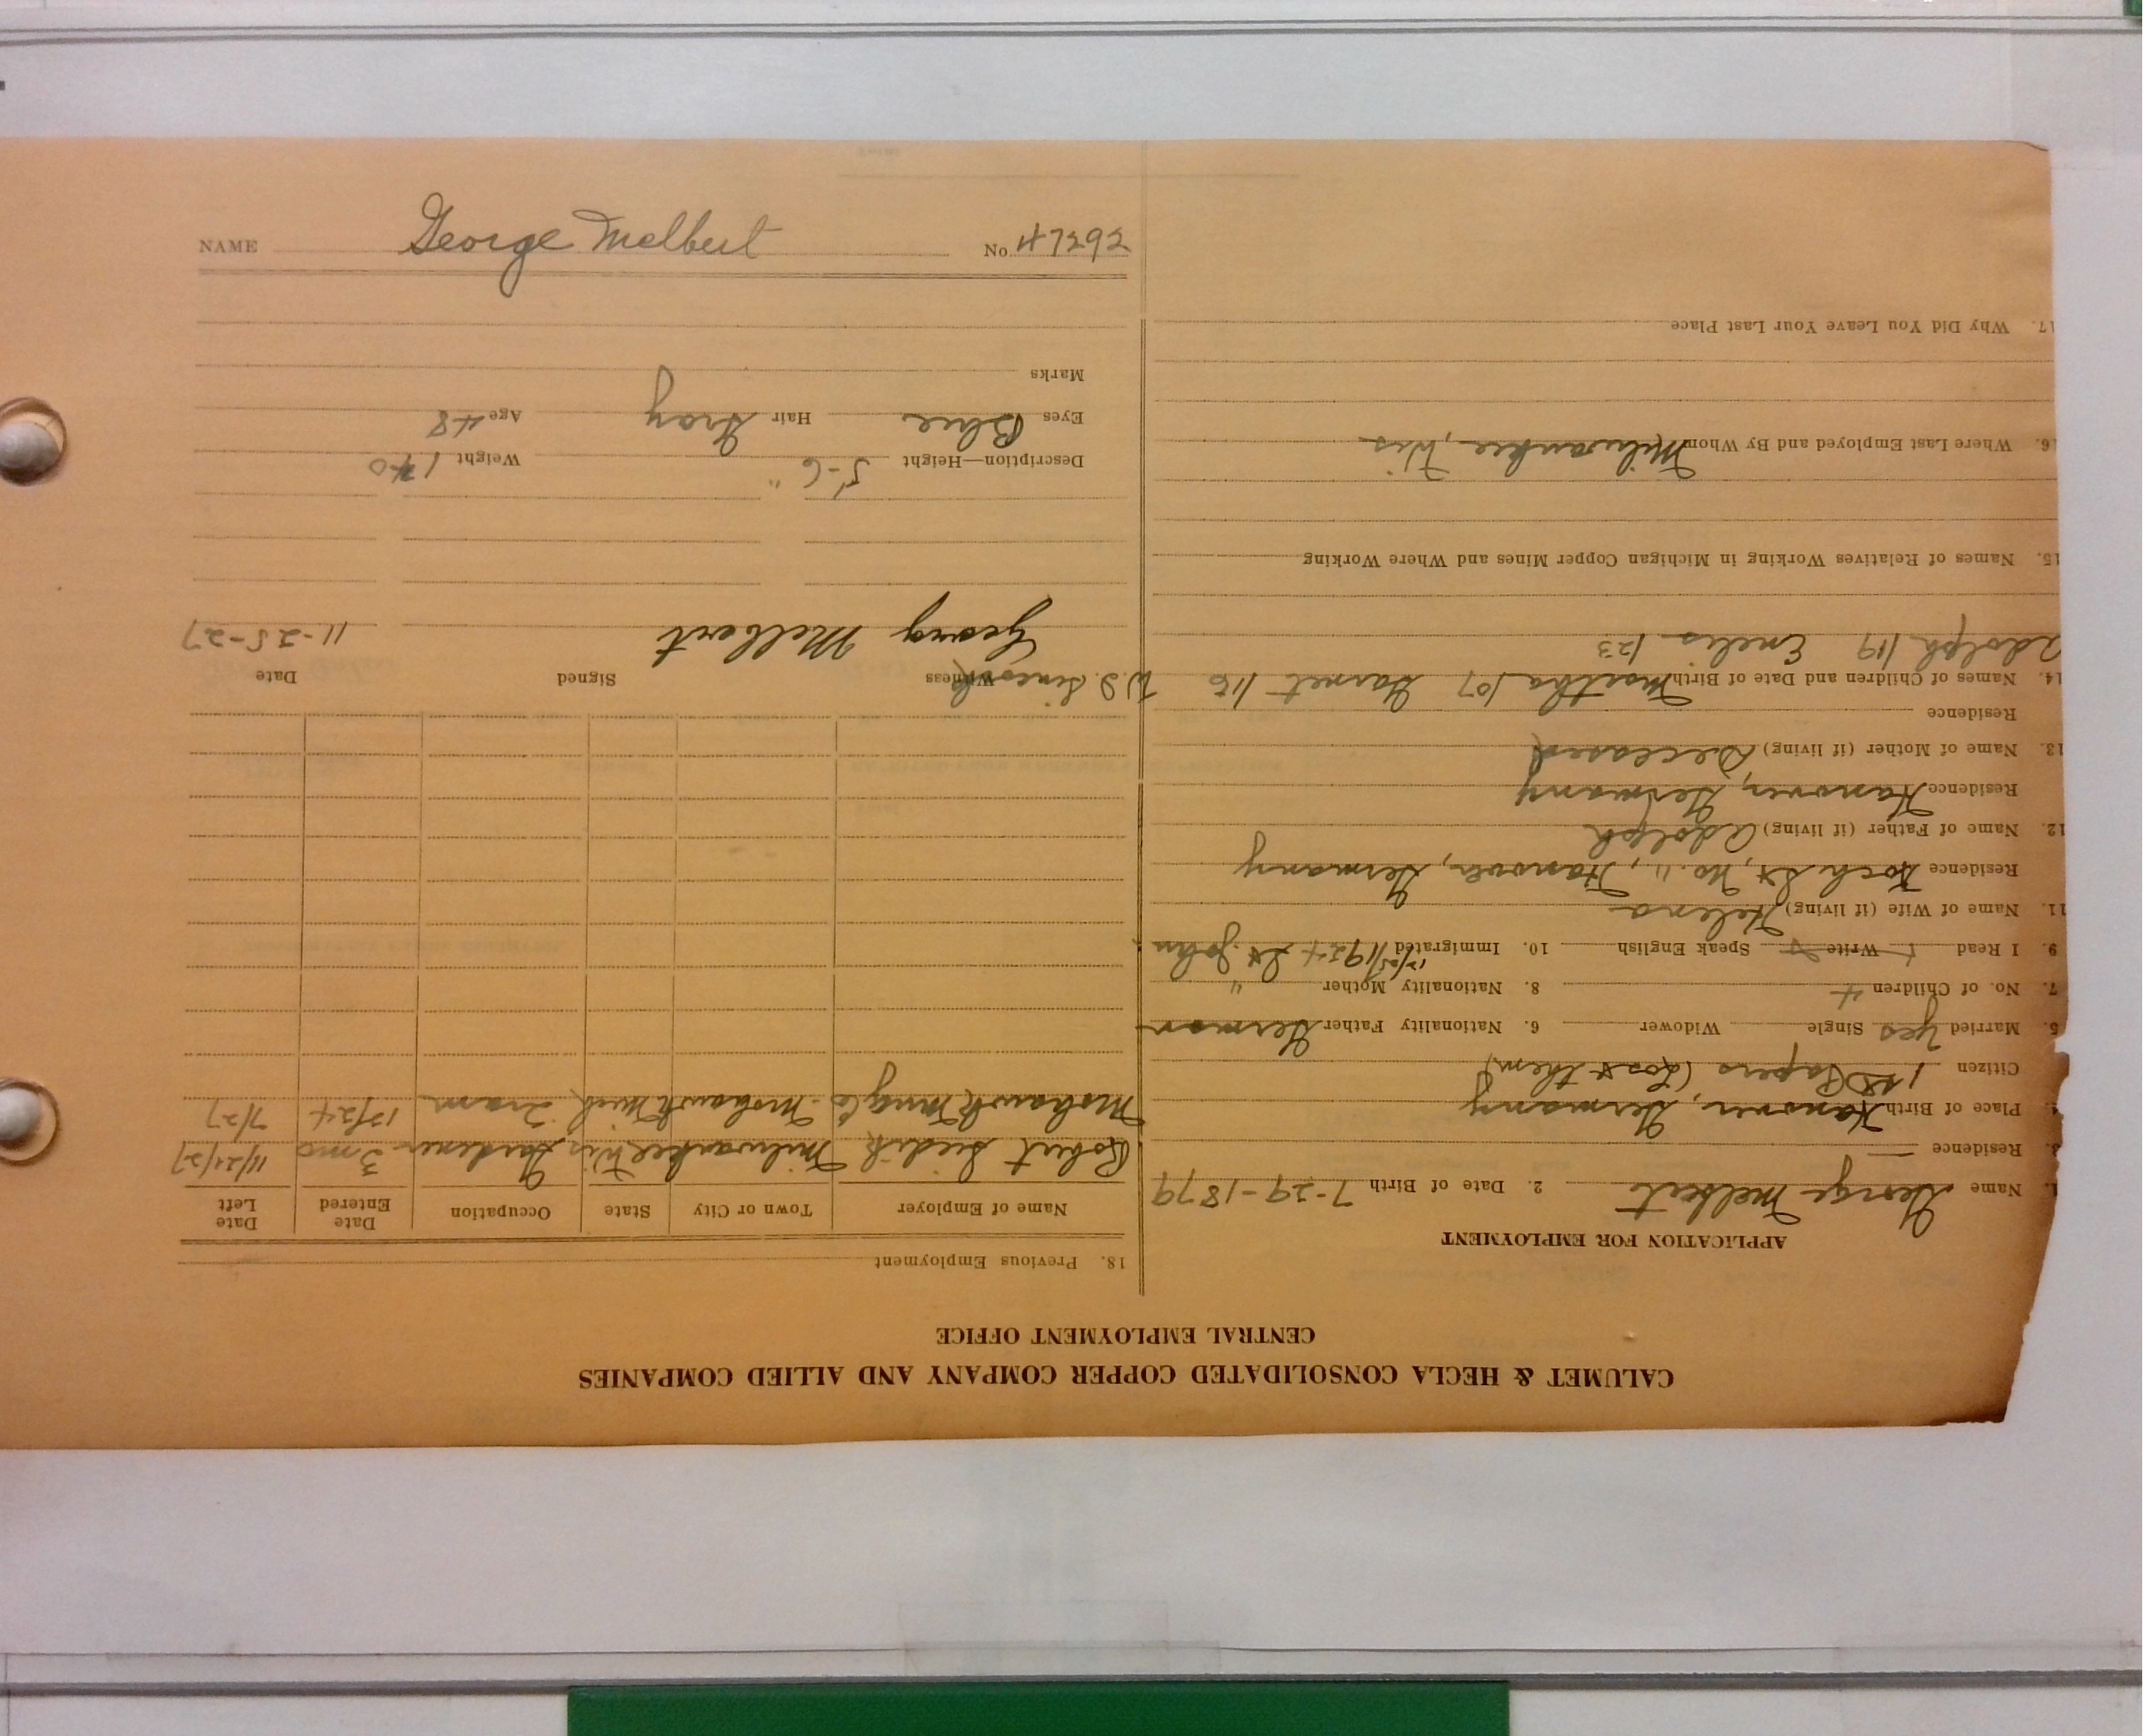 CALUMET & HECLA CONSOLIDATED COPPER COMPANY AND ALLIED COMPANIES
CENTRAL EMPLOYMENT OFFICE
APPLICATION FOR EMPLOYMENT
1. Name George Melbert 2. Date of Birth 7-29-1879
3. Residence
4. Place of Birth Hanover, Germany
Citizen 1st Papers (Lost them)
5. Married Yes Single Widower 6. Nationality Father German
7. No. of Children 4 8. Nationality Mother "
9. I Read Write Speak English 10. Immigrated 12/25/1924 St John
11. Name of Wife (if living) Helena
Residence Koch St, No. 11, Hanover, Germany
12. Name of Father (if living) Adolph
Residence Hanover, Germany
13. Name of Mother (if living) Deceased
Residence
14. Names of Children and Date of Birth Martha /07 Garnet /18
Adolph /19 /23
15. Names of Relatives Working in Michigan Copper Mines and Where Working
16. Where Last Employed and By Whom Milwaukee, Wis
17. Why Did You Leave Your Last Place
18. Previous Employment
Name of Employer Town or City State Occupation Date Entered Date Left
Robert Milwaukee Wis Gardener 3 mo 11/21/27
Mohawk Mng Co. Mohawk Mich Tram 12/24 7/27
Witness Signed Date
W.J. George Melbert 11-25-27
Description—Height 5'-6" Weight 140
Eyes Blue Hair Gray Age 48
Marks
NAME George Melbert No. 47292